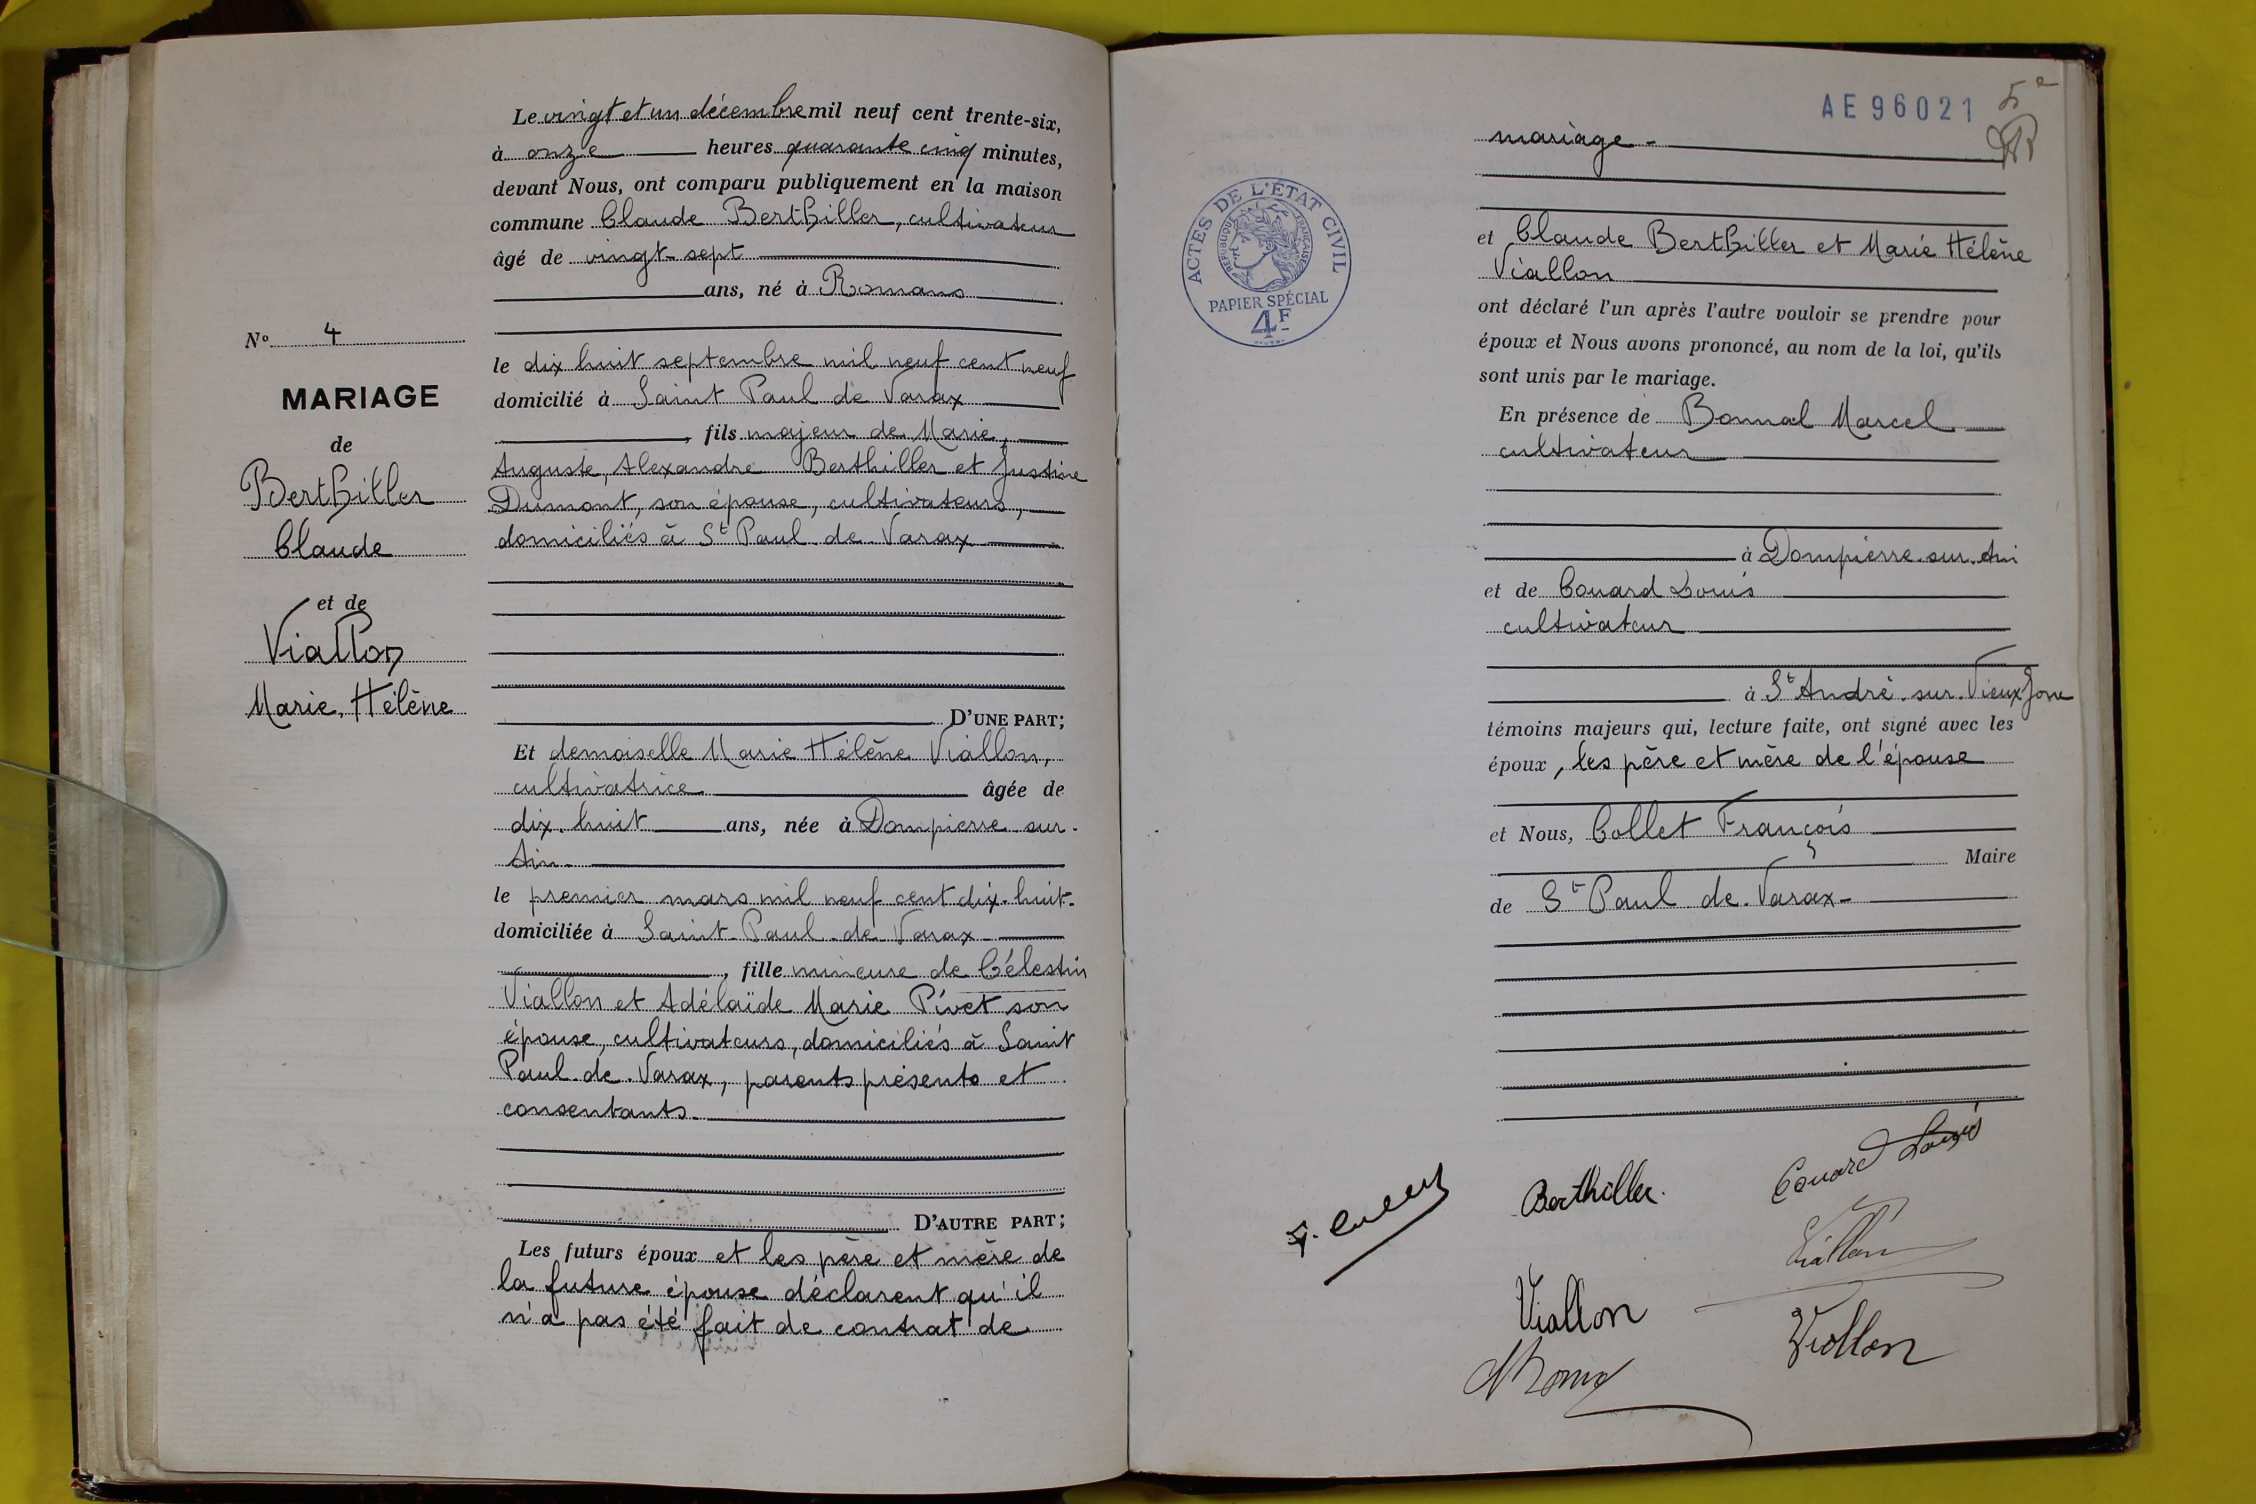 Le vingt et un décembre mil neuf cent trente-six,
à onze heures quarante cinq minutes,
devant Nous, ont comparu publiquement en la maison
commune Claude Berthiller, cultivateur
âgé de vingt-sept
ans, né à Romans
No 4
MARIAGE
de
Berthiller
Claude
et de
Viallon
Marie, Hélène
le dix huit septembre mil neuf cent neuf
domicilié à Saint Paul de Varax
, fils majeur de Marie,
Auguste, Alexandre Berthiller et Justine
Dumont, son épouse, cultivateurs,
domiciliés à St Paul de Varax
D'UNE PART;
Et demoiselle Marie Hélène Viallon,
cultivatrice âgée de
dix-huit ans, née à Dompierre-sur-
Ain
le premier mars mil neuf cent dix-huit-
domiciliée à Saint-Paul-de Varax
, fille mineure de Célestin
Viallon et Adélaïde Marie Pivet son
épouse, cultivateurs, domiciliés à Saint
Paul de Varax, parents présents et
consentants.
D'AUTRE PART;
Les futurs époux et les père et mère de
la future épouse déclarent qu'il
n'a pas été fait de contrat de
AE96021
5e
mariage-
ACTES DE L'ÉTAT CIVIL
RÉPUBLIQUE FRANÇAISE
PAPIER SPÉCIAL
4F
et Claude Berthiller et Marie Hélène
Viallon
ont déclaré l'un après l'autre vouloir se prendre pour
époux et Nous avons prononcé, au nom de la loi, qu'ils
sont unis par le mariage.
En présence de Bonnal Marcel
cultivateur
à Dompierre-sur-Ain
et de Couard Louis
cultivateur
à St André-sur-Vieux Jonc
témoins majeurs qui, lecture faite, ont signé avec les
époux, les père et mère de l'épouse
et Nous, Collet François
Maire
de St Paul de Varax-
Couard Louis
Berthiller.
Viallon
Viallon
Viollon